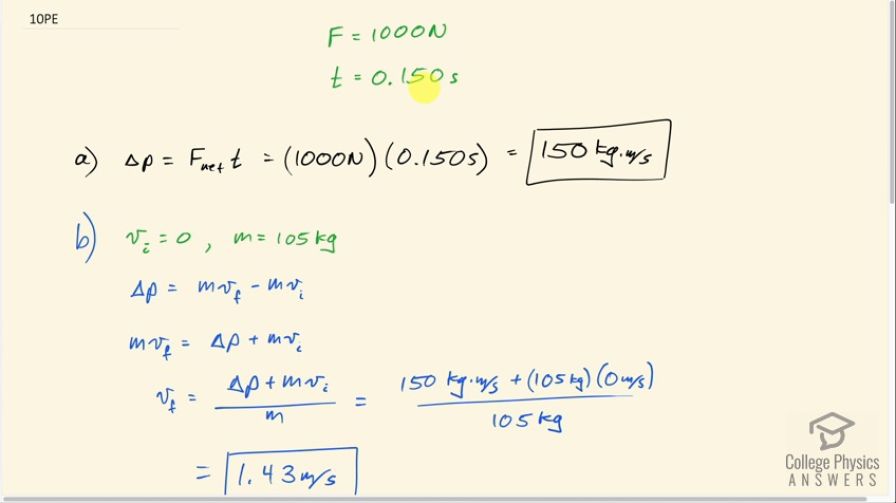 10PE
F = 1000N
t = 0.150 s
a) Δp = Fnet t = (1000N)(0.150s) = 150 kg·m/s
b) vi = 0 , m = 105 kg
Δp = mvf - mvi
mvf = Δp + mvi
vf = Δp + mvi / m = 150 kg·m/s + (105 kg)(0 m/s) / 105 kg
= 1.43 m/s
College Physics
ANSWERS